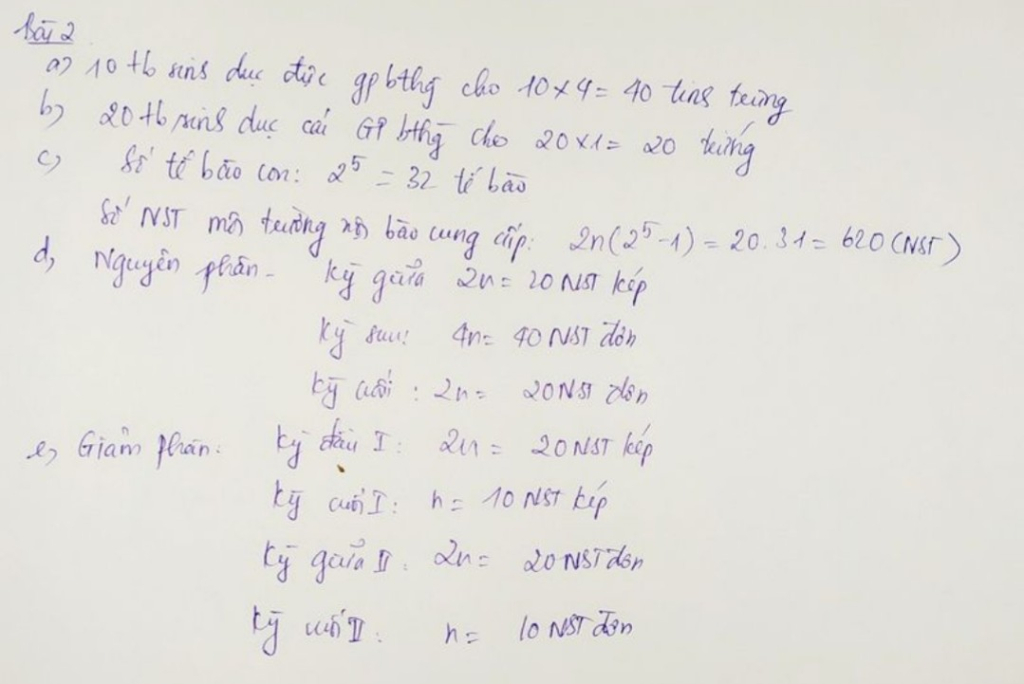 Bài 2
a) 10 tb sinh dục đực gp bthg cho 10 x 4 = 40 tinh trùng
b) 20 tb sinh dục cái GP bthg cho 20 x 1 = 20 trứng
c) Số tế bào con: 2^5 = 32 tế bào
Số NST môi trường nội bào cung cấp: 2n(2^5 - 1) = 20.31 = 620 (NST)
d, Nguyên phân - Kỳ giữa 2n = 20 NST kép
Kỳ sau: 4n = 40 NST đơn
Kỳ cuối : 2n = 20 NST đơn
e, Giảm phân: Kỳ đầu I: 2n = 20 NST kép
Kỳ cuối I: n = 10 NST kép
Kỳ giữa II: 2n = 20 NST đơn
Kỳ cuối II: n = 10 NST đơn